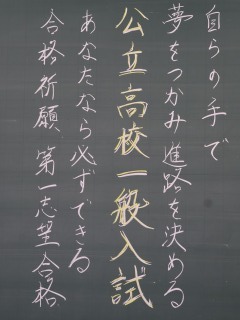 自らの手で
夢をつかみ進路を決める
公立高校一般入試
あなたなら必ずできる
合格祈願 第一志望合格